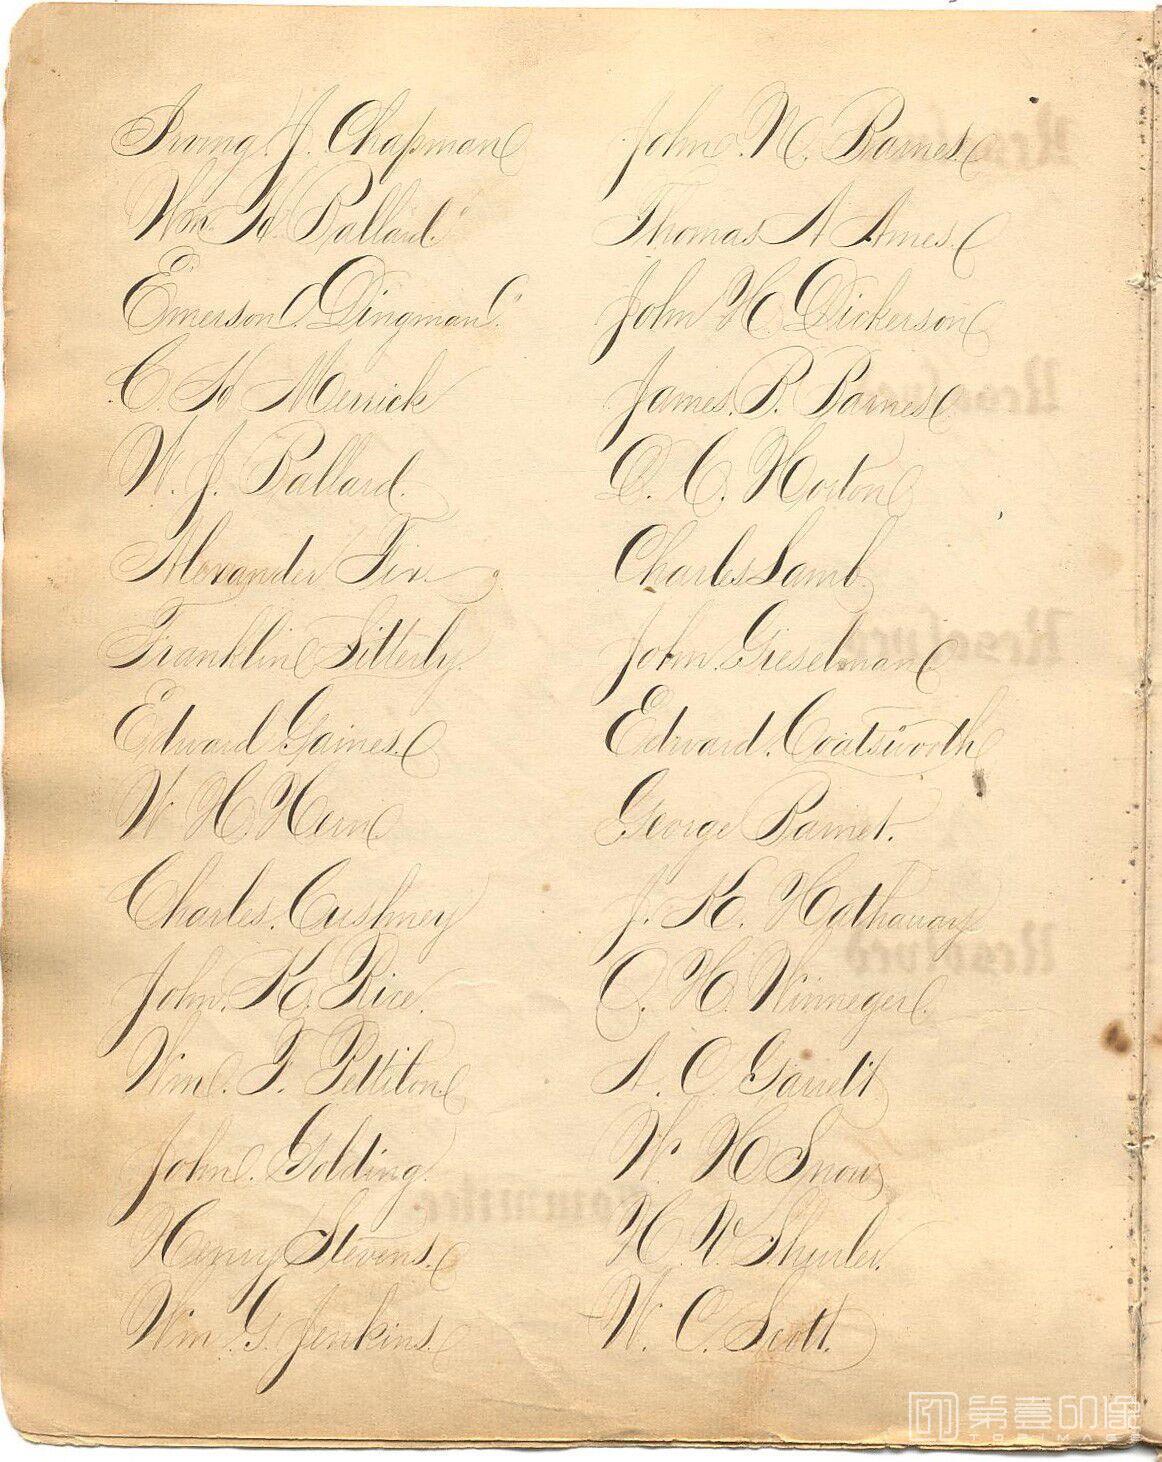 Irving J. Chapman
Wm. H. Ballard.
Emerson. Dingman.
C. H. Merrick
W. J. Ballard.
Alexander Fix.
Franklin Sitterly.
Edward Gaines.
W. H. Hern
Charles. Cushney
John. K. Rice.
Wm. F. Pettiton
John. Golding.
Henry Stevens.
Wm. G. Jenkins.
John. N. Barnes.
Thomas A Ames.
John H. Dickerson
James. B. Barnes.
D. C. Horton
Charles Lamb.
John. Gieselman
Edward. Coatsworth
George Barnet.
J. K. Hathaway
C. H. Winneger.
A. C. Garrett
W. H Snow
H. V. Shurler.
W. C. Scott.
Resolved
Resolved
Resolved
Resolved
Committee.
第壹印像
TOPIMAGE